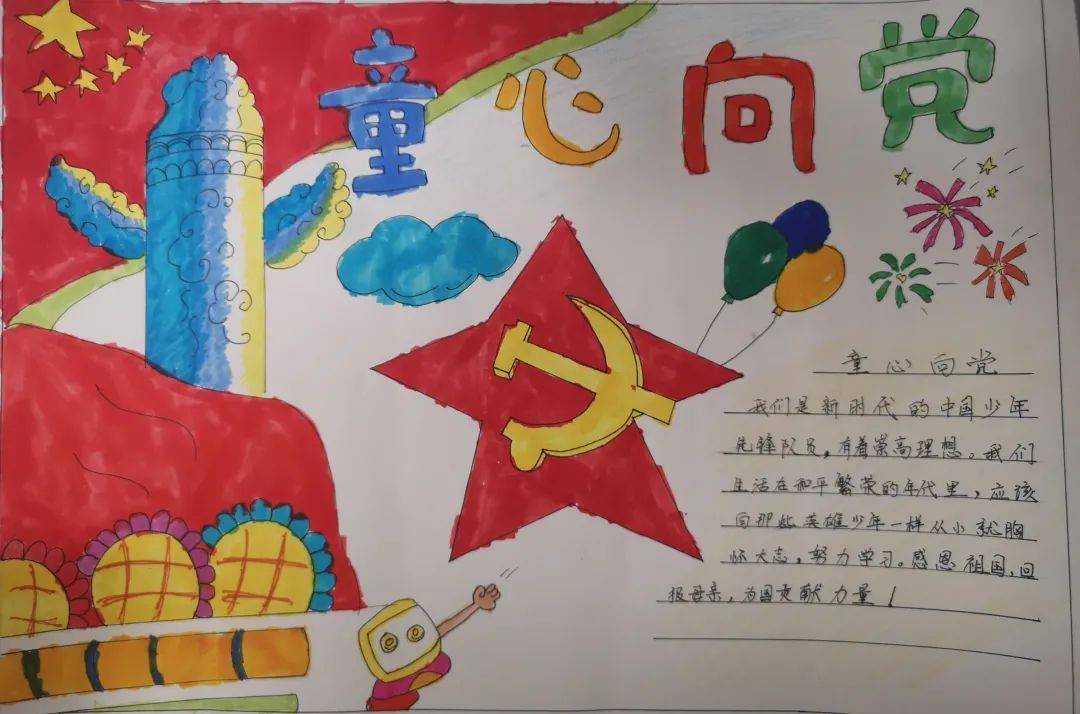 童心向党
童心向党
我们是新时代的中国少年
先锋队员，有着崇高理想。我们
生活在和平繁荣的年代里，应该
向那些英雄少年一样从小就胸
怀大志，努力学习。感恩祖国，回
报母亲，为国贡献力量！